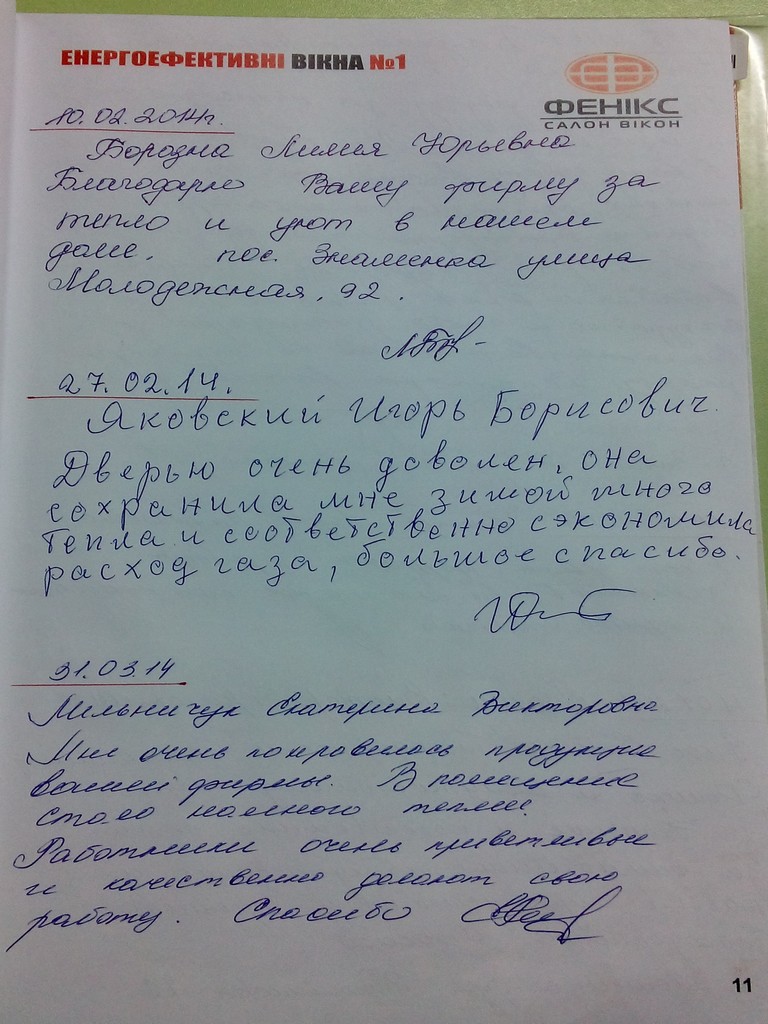 ЕНЕРГОЕФЕКТИВНІ ВІКНА №1
ФЕНІКС
САЛОН ВІКОН
10.02.2014г.
Борозна Лилия Юрьевна
Благодарю Вашу фирму за
тепло и уют в нашем
доме. пос. Знаменка улица
Молодежная, 92.
27.02.14.
Яковский Игорь Борисович.
Дверью очень доволен, она
сохранила мне зимой много
тепла и соответственно сэкономила
расход газа, большое спасибо.
31.03.14
Мельничук Екатерина Викторовна
Мне очень понравилось продукция
вашей фирмы. В помещение
стало намного теплей.
Работники очень приветливые
и качественно делают свою
работу. Спасибо
11